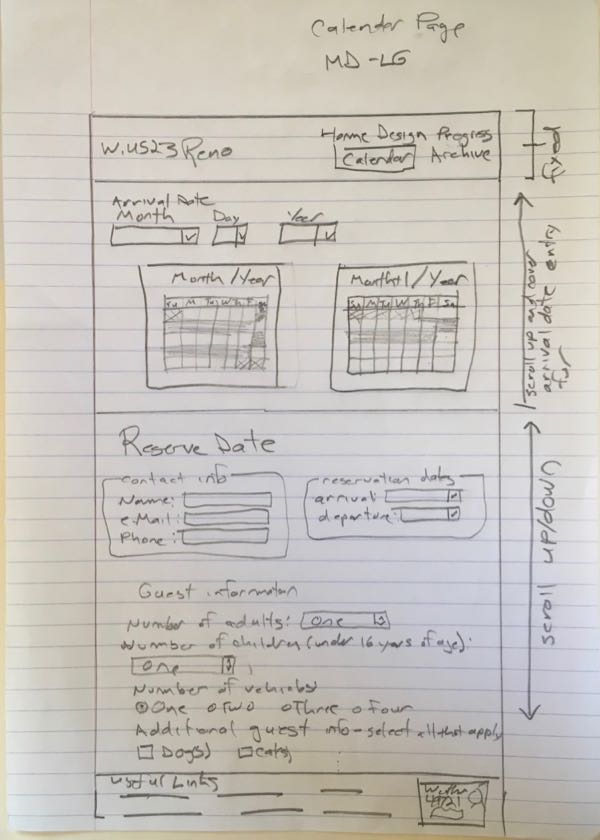 Calendar Page
MD-LG
Home Design Progress
W.US23Reno
Calendar Archive
fixed
Arrival Date
Month Day Year
Month/Year
Su M Tu W Th F Sa
Month+1/Year
Su M Tu W Th F Sa
scroll up and cover
arrival date entry
Reserve Date
contact info
Name:
e.Mail:
Phone:
reservation dates
arrival:
departure:
scroll up/down
Guest information
Number of adults: One
Number of children (under 16 years of age):
One
Number of vehicles
One Two Three Four
Additional guest info-select all that apply
Dog(s) Cat(s)
Useful Links